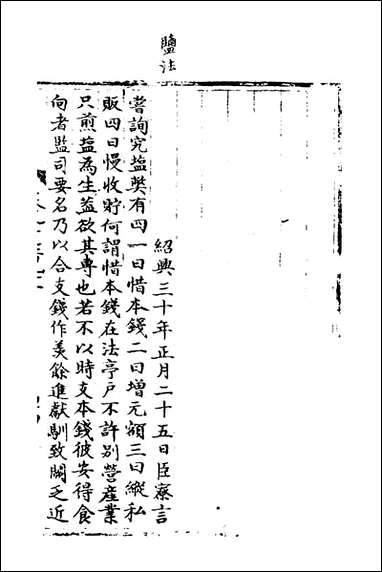 鹽法
紹興三十年正月二十五日臣察言
嘗詢究塩獘有四一曰惜本錢二曰增元額三曰縱私
販四曰慢收貯何謂惜本錢在法亭戶不許别營産業
只煎塩為生葢欲其專也若不以時支本錢彼安得食
向者監司要名乃以合支錢作羙餘進獻馴致闕乏近